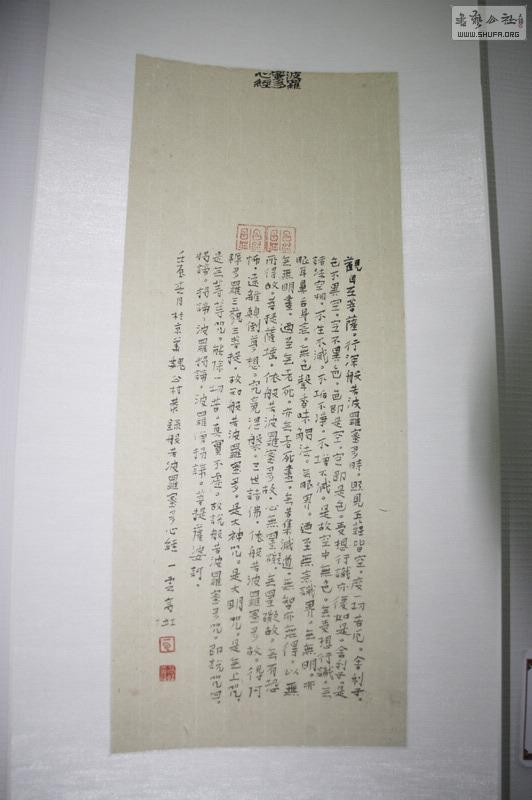 書法公社
WWW.SHUFA.ORG
波羅
蜜多
心經
觀自在菩薩。行深般若波羅蜜多時。照見五蘊皆空。度一切苦厄。舍利子。
色不異空。空不異色。色即是空。空即是色。受想行識亦復如是。舍利子。是
諸法空相。不生不滅。不垢不淨。不增不減。是故空中無色。無受想行識。無
眼耳鼻舌身意。無色聲香味觸法。無眼界。迺至無意識界。無無明。亦
無無明盡。迺至無老死。亦無老死盡。無苦集滅道。無智亦無得。以無
所得故。菩提薩埵。依般若波羅蜜多故。心無罣礙。無罣礙故。無有恐
怖。遠離顛倒夢想。究竟涅槃。三世諸佛。依般若波羅蜜多故。得阿
耨多羅三藐三菩提。故知般若波羅蜜多。是大神咒。是大明咒。是無上咒。
是無等等咒。能除一切苦。真實不虛。故說般若波羅蜜多咒。即說咒曰。
揭諦。揭諦。波羅揭諦。波羅僧揭諦。菩提薩婆訶。
壬辰 月 於京 魏公村 錄般若波羅蜜多心經 一雲高虹